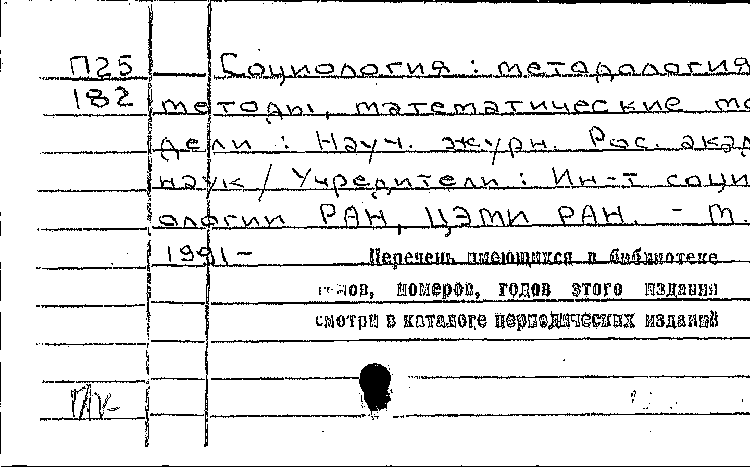 П25 Социология : методология
182 методы, математические мо
дели : Науч. журн. Рос. акад
наук / Учредители : Ин-т соци
ологии РАН, ЦЭМИ РАН. - М.
1991- Перечень имеющихся в библиотеке
томов, номеров, годов этого издания
смотри в каталоге периодических изданий